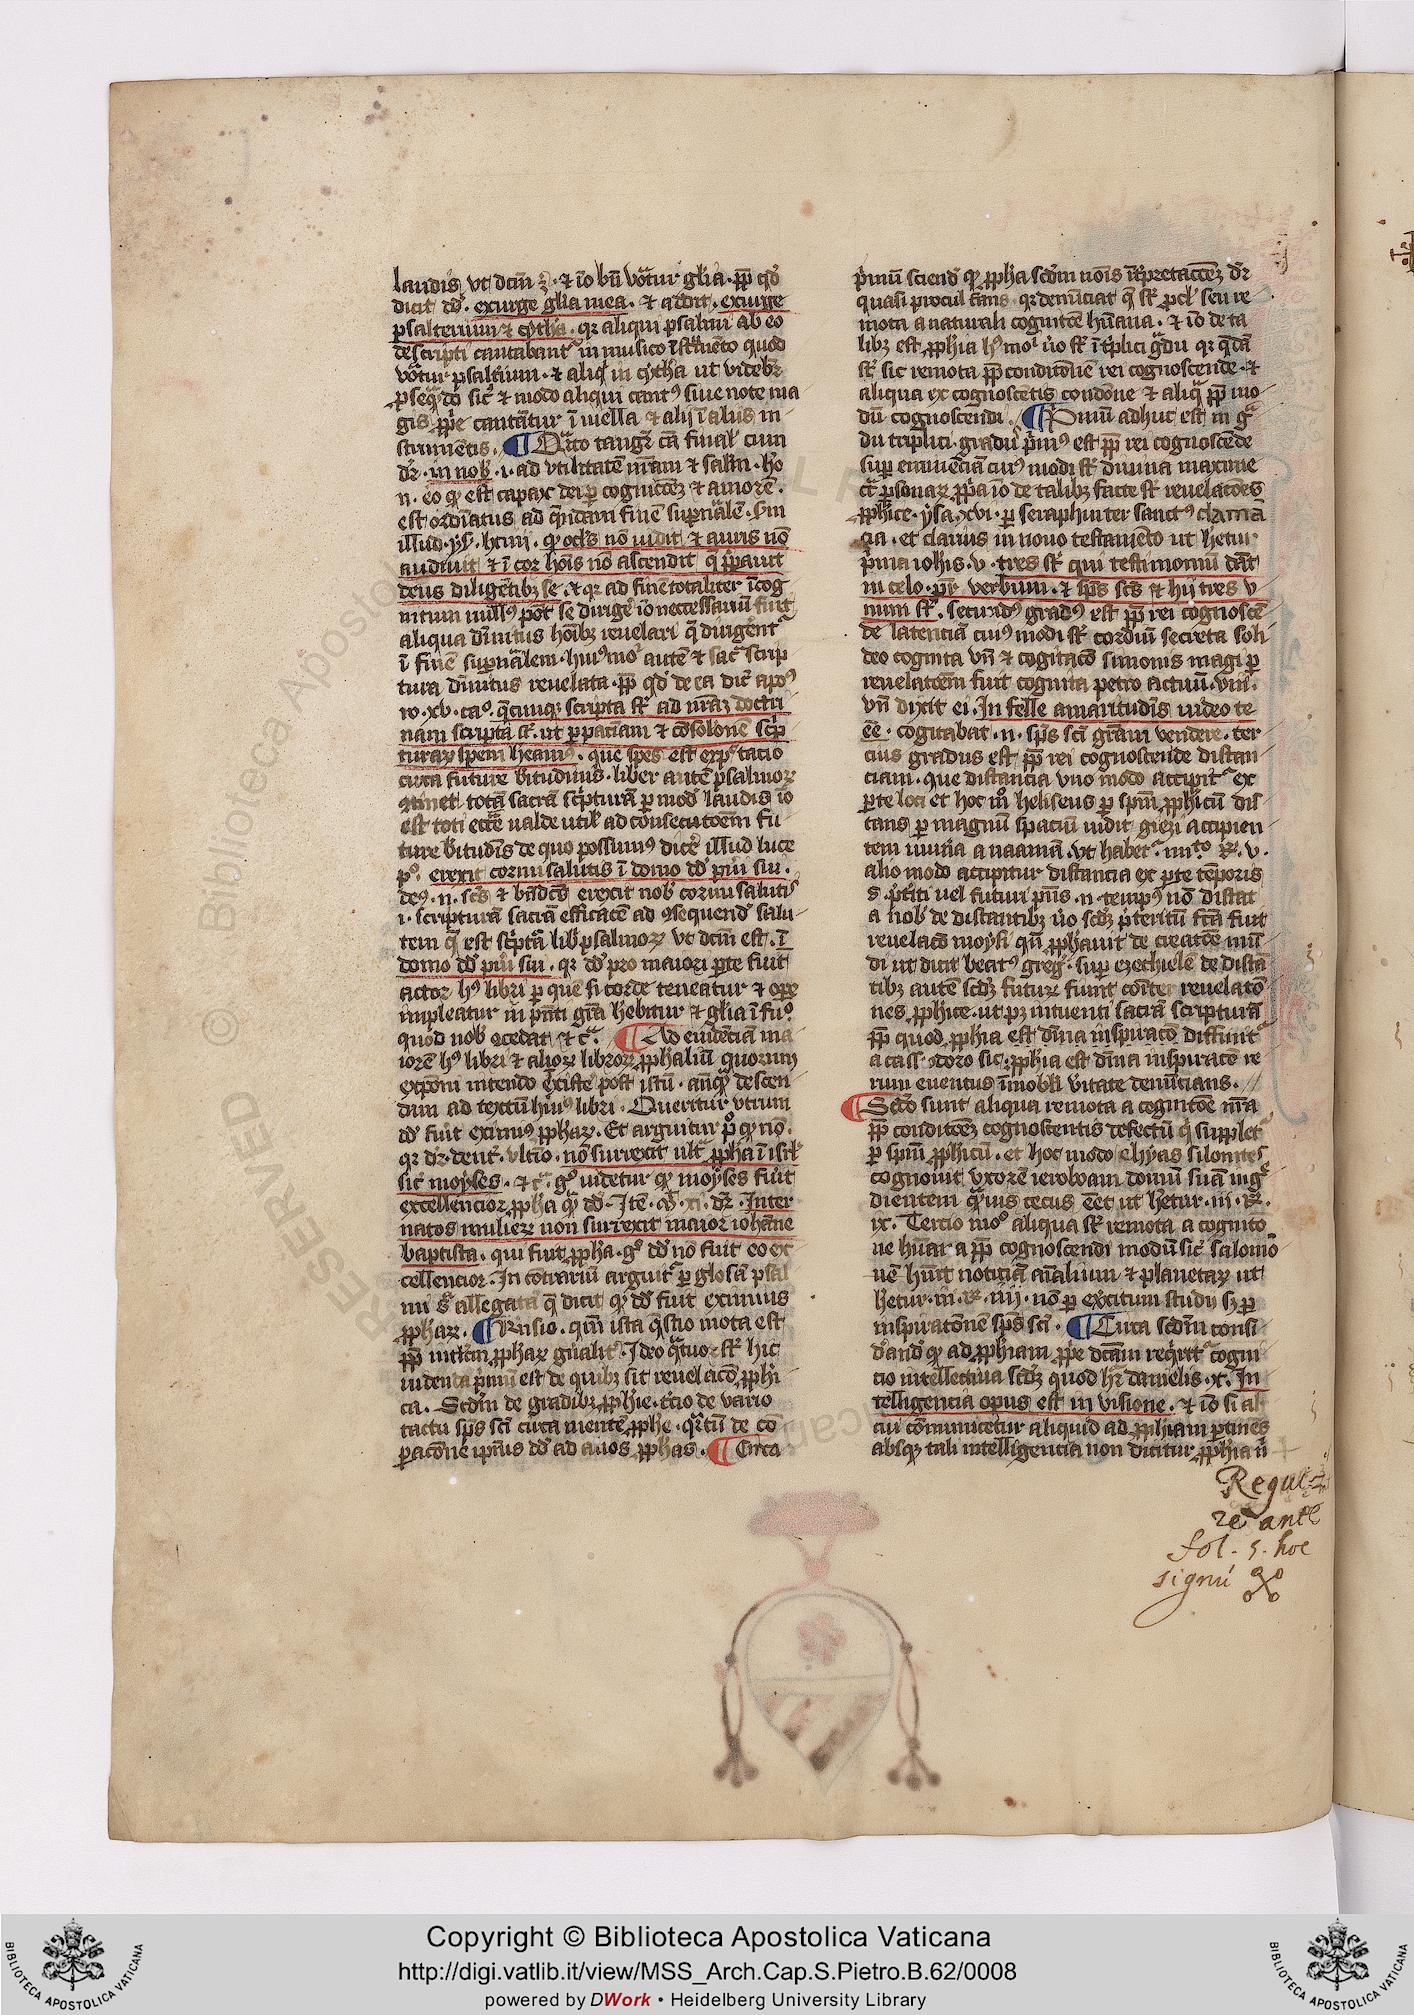 laudis ut dcm̄ ē. ⁊ iō bn̄ vocatur gl̄ia. ꝓp̄ qd̓
dicit dd̓. exurge gl̄ia mea. ⁊ addit. exurge
psalterium ⁊ cythā. qr aliqui psalmi ab eo
descripti cantabant᷑ in musico īstrumēto quod
vocatur psaltium. ⁊ aliq̄ in cythā ut videbr̄
sic̓ ⁊ modo aliqui cant᷒ siue note ma
gis ꝓpͥe cantātur ī uiella ⁊ alij ī alijs in-
strumētis. ¶ Qͣrto tangr̄ cā final̓ cum
dr̄. in nob̓. i. ad vtilitatē nr̄am ⁊ salm̄. hō
n. eo ꝙ est capax dei ꝑ cognitōꝫ ⁊ amorē.
est ordīatus ad quēdam finē suꝑnͣalē. Sm̄
illud. ys̄. lxiiij. ꝙ ocl̓s nō uidit ⁊ auris nō
audiuit ⁊ ī cor hoīs nō ascendit q̄ p̄parauit
deus diligētibꝫ se. ⁊ qr ad finē totaliter īcog
nitum null᷒ pōt se dirigē iō neccessariū fuit
aliqua diuinitus hoībꝫ reuelari q̄ dirigent᷑
ī finē suꝑnͣalem. hui᷒mō autē ⁊ sacͣ scrip
tura diuinitus reuelata. ꝓp̄ qd̓ de ea dic̄ apo᷒
ro. xv. cao. q̄cumqꝫ scripta st̄ ad nr̄aꝫ doctri
nam scripta st̄. ut ꝑ paciam ⁊ cōsolōnē sc̓p
turaꝝ spem heam᷒. que spes est exp̄ctatio
circa future b̄itudinis. liber autē psalmoꝝ
ꝯtinet totā sacrā scͥpturā ꝑ mod̓ laudis iō
est toti eccl̄ie ualde util̓ ad consecutōem fu
ture b̄itudīs de quo possum᷒ dicē illud luce
pͦ. erexit cornu salutis ī domo dd̓ pūi sui.
de᷒. n. sc̄s ⁊ bn̄dc̄s erexit nob̓ cornu salutis
i. scripturā sacrā efficacē ad ꝯsequend̓ salu-
tem q̄ est scͥptā libͬ psalmoꝝ ut dcm̄ est. ī
domo dd̓ pūi sui. qr dd̓ pro maiori ꝑte fuit
actor h᷒ libri ꝑ quē si corde teneatur ⁊ oꝑe
impleatur in pn̄ti grā hebitur ⁊ gl̄ia ī fuͦ.
quod nob̓ ꝯcedat ⁊ cͣ. ¶ Ad euidēciam ma
iorē h᷒ libri ⁊ alioꝝ libroꝝ ꝓphaliū quorum
expōni intendo existē post istū. anteqͣ descen
dam ad textū hui᷒ libri. Queritur vtrum
dd̓ fuit eximi᷒ ꝓphaꝝ. Et arguitur pͦ ꝙ nō.
qr dr̄. deut. vltīo. nō surrexit ultͣ ꝓpha ī isrl̓
sic̓ moyses. ⁊ cͣ. gͦ uidetur ꝙ moyses fuit
excellencior ꝓpha qͣ dd̓. Itē. mͭ. xi. dr̄. Inter
natos mulierꝝ non surrexit maior iohāne
baptista. qui fuit ꝓpha. gͦ dd̓ nō fuit eo ex
cellencior. In cōtrariū arguit᷑ ꝑ glosā psal
mi sͣ allegata q̄ dicit ꝙ dd̓ fuit eximius
ꝓphaꝝ. ¶ Rn̄sio. qm̄ ista q̄stio mota est
ꝓp̄ ꝓphaꝝ gn̄alit᷑. Ideo qͣtuor st̄ hic
uidenda pͥmū est de quibꝫ sit reuelacō ꝓphi
ca. Scd̓m de gradibꝫ ꝓphīe. tͨcio de vario
tactu sp̄s sci circa mentē ꝓphe. qͣrtū de cō
ꝑacōne ipīus dd̓ ad alios ꝓphas. ¶ Circa
pͥmū sciend̓ ꝙ ꝓpha scd̓m noīs īt̓pretacōeꝫ dr̄
quasi procul fans. qr denūciat q̄ st̄ ꝓcl̓ seu re
mota a naturali cognitōe hūana. ⁊ iō de ta
libꝫ est ꝓphīa h᷒moͥ uͦo st̄ ī tͥplici gͣdu qr qͣdā
st̄ sic remota ꝓp̄ conditōnē rei cognoscende. ⁊
aliqua ex cognoscētis condōne ⁊ aliqͣ ꝓp̄ mo
dū cognoscendi. ¶ Pͥmū adhuc est in gͣ
du triplici. gradu pͥm᷒ est ꝓp̄ rei cognoscēde
suꝑ eminēciam cui᷒modi st̄ diuina maxime
cͣ ꝑsonaꝝ ꝓpͥa iō de talibꝫ facte st̄ reuelacōes
ꝓphīce. ysa. xvi. ꝑ seraphin ter sanct᷒ clamā
cia. et clarius in nouo testamēto ut hetur
pͥma iohis. v. tres st̄ qui testimoniū dāt
in celo. pr̄ verbum. ⁊ sp̄s sc̄s ⁊ hij tres v
num st̄. secund᷒ grad᷒ est ꝓp̄ rei cognoscē
de latenciā cui᷒modi st̄ cordiū secreta soli
deo cognita vn̄ ⁊ cogitacō simonis magi ꝑ
reuelacōem fuit cognita petro actuū. viij.
vn̄ dixit ei. In felle amaritudīs uideo te
eē. cogitabat. n. sp̄s sci grām vendere. ter
cius gradus est ꝓp̄ rei cognoscende distan
ciam. que distancia vno modo accipit᷑ ex
ꝑte loci et hoc mͦ heliseus ꝑ spm̄ ꝓphīcū dis
tans ꝑ magnū spaciū uidit giezi accipien
tem mun̄a a naamā. vt habet᷑ iiijto ꝶ. v.
alio modo accipitur distancia ex ꝑte tēporis
s. pͥtiti uel futuri pn̄s. n. temp᷒ nō distat
a nob̓ de distantibꝫ uͦo scd̓ꝫ pͥteritū fcā fuit
reuelacō moysi qn̄ ꝓphauit de creacōe mū
di ut dicit beat᷒ greg᷒. suꝑ ezechielē de distā
tibꝫ autē scd̓ꝫ futurꝝ fiunt cōiter reuelacō
nes ꝓphīce. ut pꝫ intuenti sacrā scripturā
ꝓp̄ quod ꝓphīa est diuina inspiracō diffinit᷑
a cass̓. odoro sic. ꝓphīa est diuina inspiracō re
rum euentus īmobili v̓itate denūcians.
¶ Scd̓o sunt aliqua remota a cognitōe nr̄a
ꝓp̄ conditōeꝫ cognoscentis defectū q̄ supplet᷑
ꝑ spm̄ ꝓphīcū. et hoc modo elyyas silonites
cognouit vxorē ieroboam domū suā ingͬ
dientem qͣmuis cecus eēt ut hetur. iij. ꝶ.
ix. Tercio moͦ aliqua st̄ remota a cognito
ne hūana ꝓp̄ cognoscendi modū sic̓ salomō
nē hūit noticiā aīalium ⁊ plantaꝝ ut
hetur. iij. ꝶ. iiij. nō ꝑ exͨcitum studij sꝫ ꝑ
inspiratōnē sp̄s sci. ¶ Circa scd̓m consi
dͬand̓ ꝙ ad ꝓphīam ꝓpͥe dcām reqrit᷑ cogni
cio intellectiua scd̓ꝫ quod hr̄ danielis. x. In
telligencia opus est in uisione. ⁊ iō si ali
cui cōmunicetur aliquid ad ꝓphīam ꝑtinēs
absqꝫ tali intelligencia non dicitur ꝓphīa ū
Regul
re ante
fol. 5. hoc
signū
Copyright © Biblioteca Apostolica Vaticana
http://digi.vatlib.it/view/MSS_Arch.Cap.S.Pietro.B.62/0008
powered by DWork • Heidelberg University Library
BIBLIOTECA APOSTOLICA VATICANA
BIBLIOTECA APOSTOLICA VATICANA